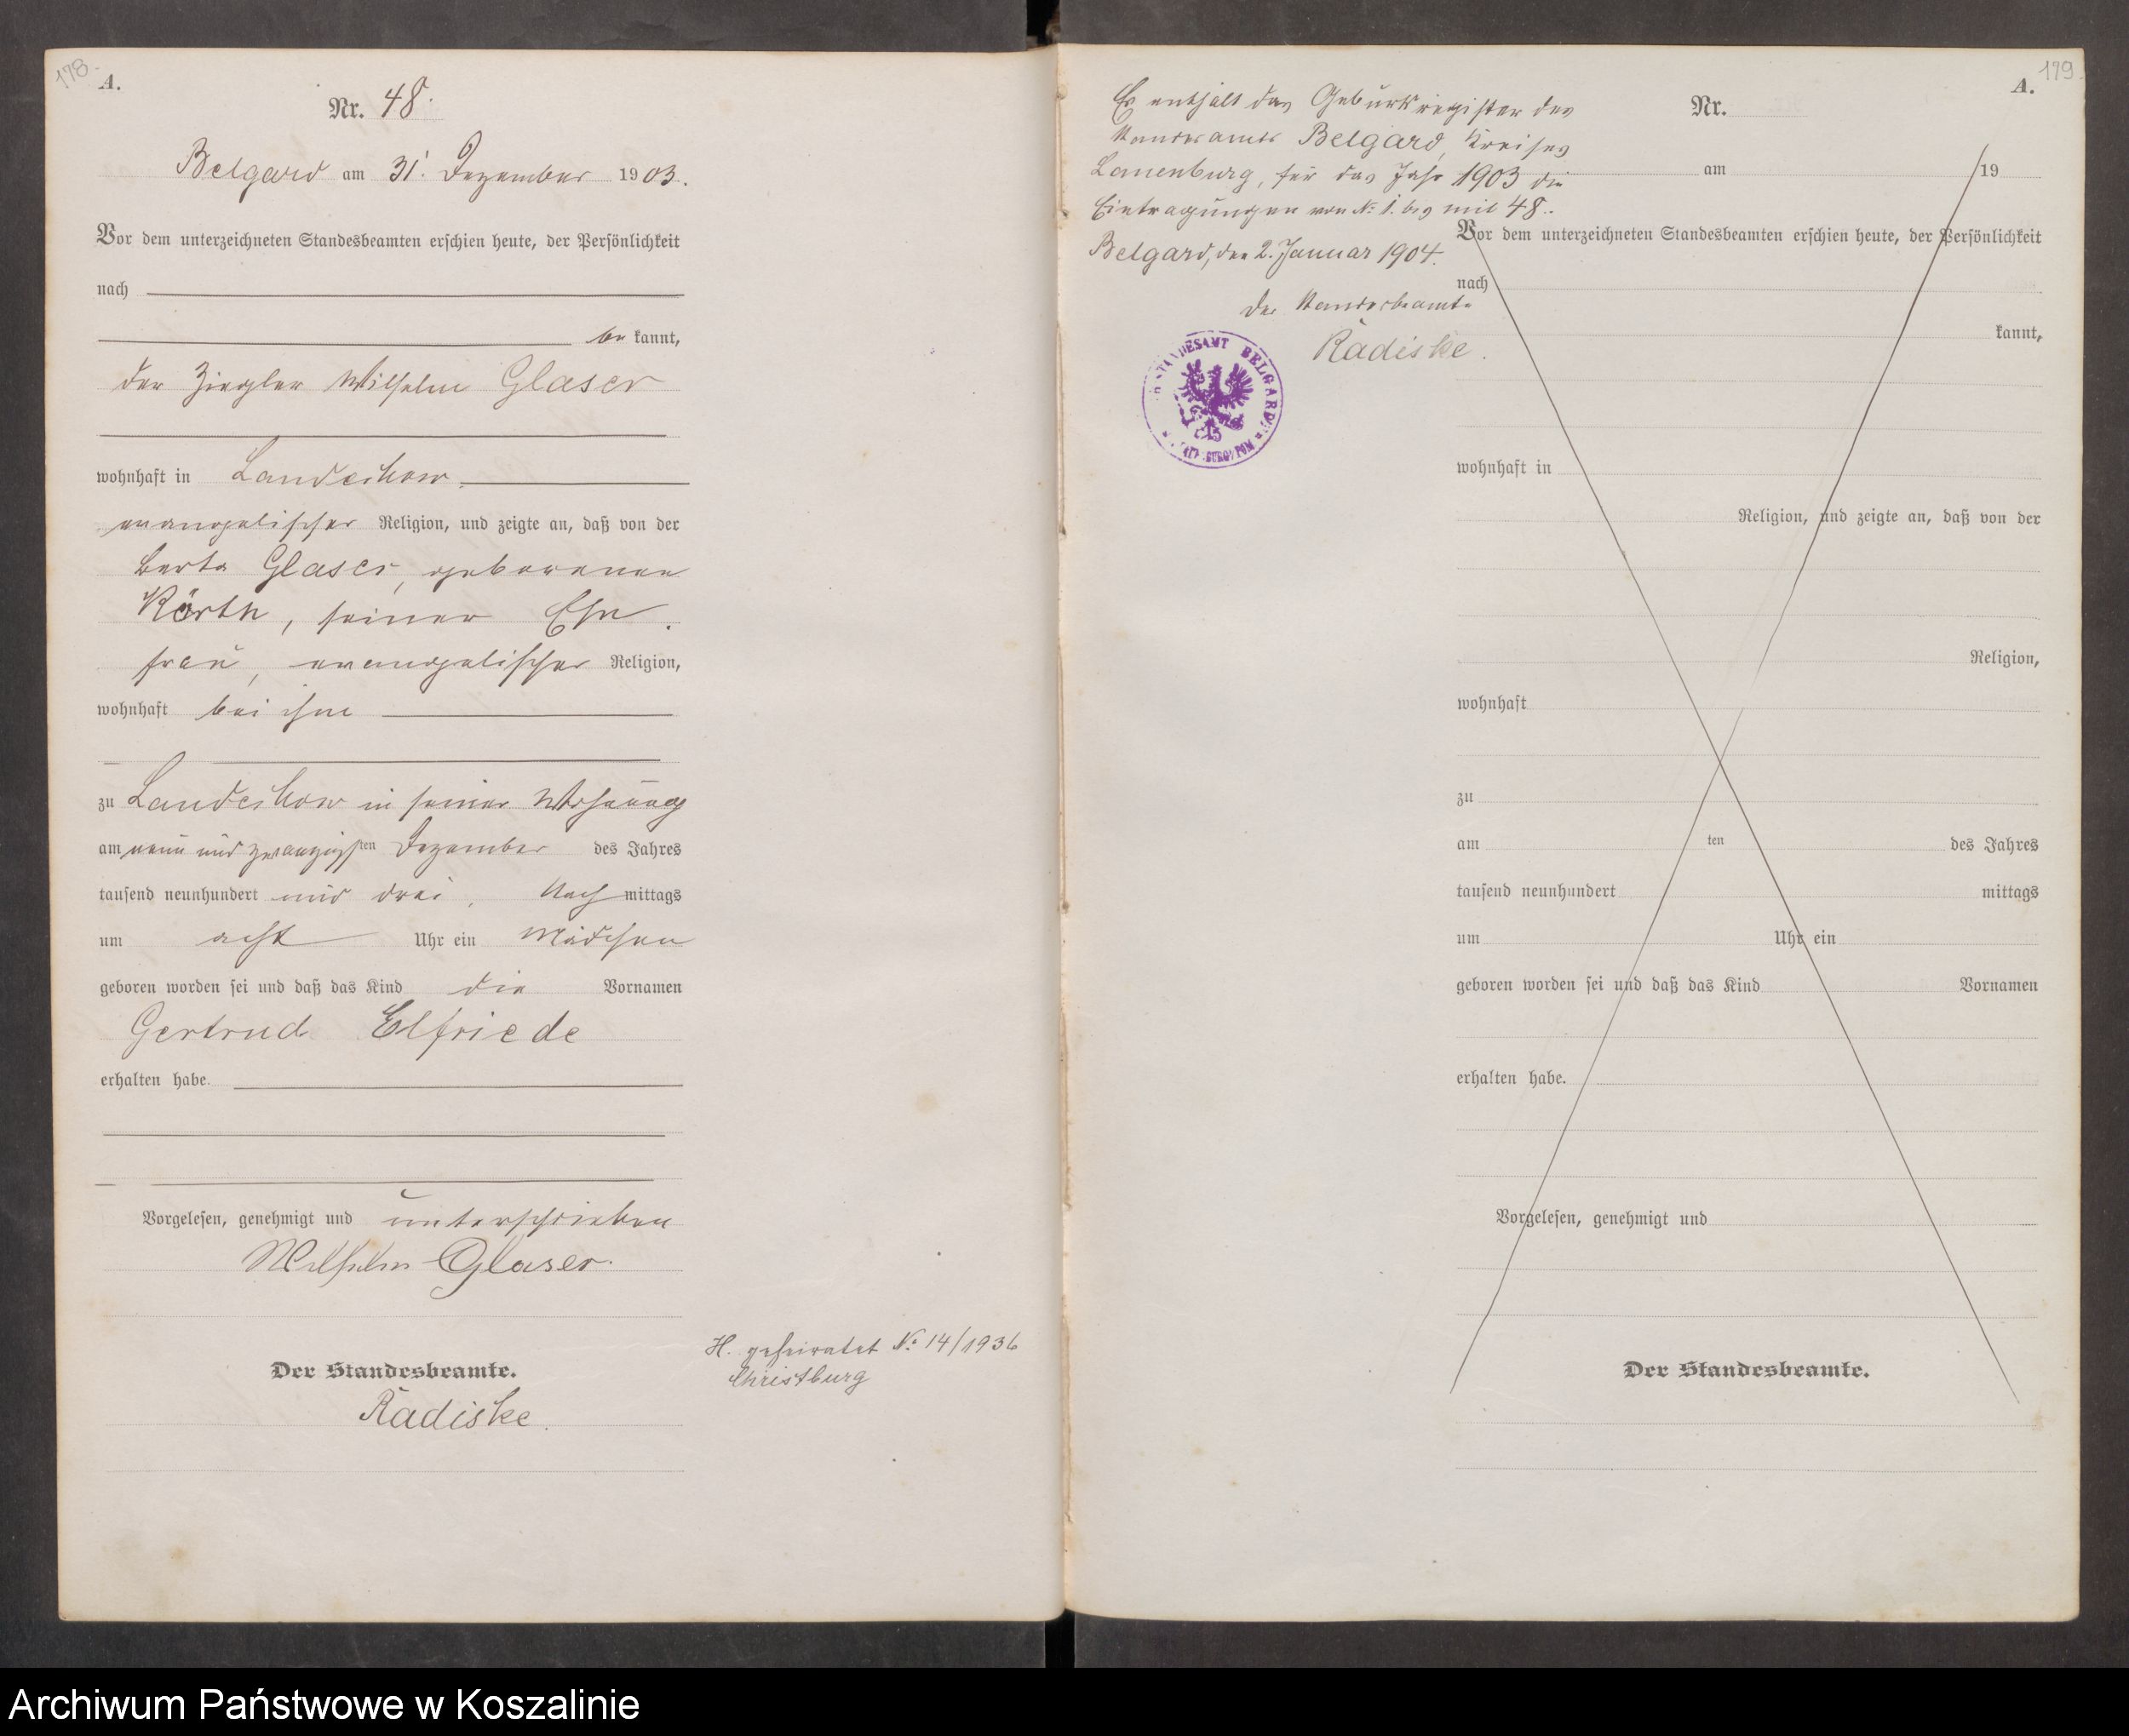 178.
A.
Nr. 48.
Belgard am 31. Dezember 1903.
Vor dem unterzeichneten Standesbeamten erschien heute, der Persönlichkeit
nach
be kannt,
der Ziegler Wilhelm Glaser
wohnhaft in Landechow
evangelischer Religion, und zeigte an, daß von der
Berta Glaser, geborenen
Körth, seiner Ehe
frau, evangelischer Religion,
wohnhaft bei ihm
zu Landechow in seiner Wohnung
am neun und zwanzigsten Dezember des Jahres
tausend neunhundert und drei, Nach mittags
um acht Uhr ein Mädchen
geboren worden sei und daß das Kind die Vornamen
Gertrud Elfriede
erhalten habe.
Vorgelesen, genehmigt und unterschrieben
Wilhelm Glaser.
Der Standesbeamte.
Radiske.
H. geheiratet No 14/1936
Christburg
179
A.
Es enthält das Geburtsregister des
Standesamts Belgard, Kreises
Lauenburg, für das Jahr 1903 die
Eintragungen von No 1. bis mit 48.
Belgard, den 2. Januar 1904.
Der Standesbeamte
Radiske.
STANDESAMT BELGARD
Nr.
am 19
Vor dem unterzeichneten Standesbeamten erschien heute, der Persönlichkeit
nach
kannt,
wohnhaft in
Religion, und zeigte an, daß von der
Religion,
wohnhaft
zu
am ten des Jahres
tausend neunhundert mittags
um Uhr ein
geboren worden sei und daß das Kind Vornamen
erhalten habe.
Vorgelesen, genehmigt und
Der Standesbeamte.
Archiwum Państwowe w Koszalinie